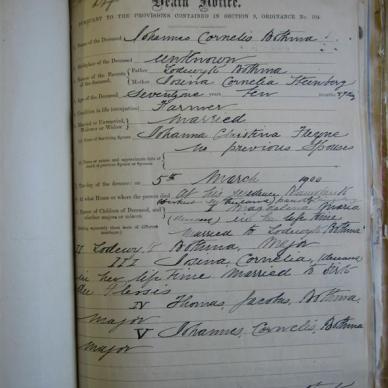 Death Notice.
PURSUANT TO THE PROVISIONS CONTAINED IN SECTION 9, ORDINANCE No. 104
1. Name of the Deceased Johannes Cornelis Bothma
2. Birthplace of the Deceased unknown
3. Names of the Parents of the Deceased Father Lodewyk Bothma
Mother Josina Cornelia Steenberg
4. Age of the Deceased Seventyone years Ten months
5. Condition in life (occupation) Farmer
6. Married or Unmarried, Widower or Widow Married
Name of surviving Spouse Johanna Christina
no previous Spouses
7. The day of the decease on 5th March 1900
8. At what House or where the person died At his residence
9. Names of Children of Deceased, and whether majors or minors Magdalena Maria
(deceased) in her life time
married to Lodewyk Bothma
II Lodewyk Bothma, Major
III Josina, Cornelia, (deceased)
in her life time married to
du Plessis
IV Thomas, Jacobus, Bothma,
major
V Johannes, Cornelis, Bothma
major